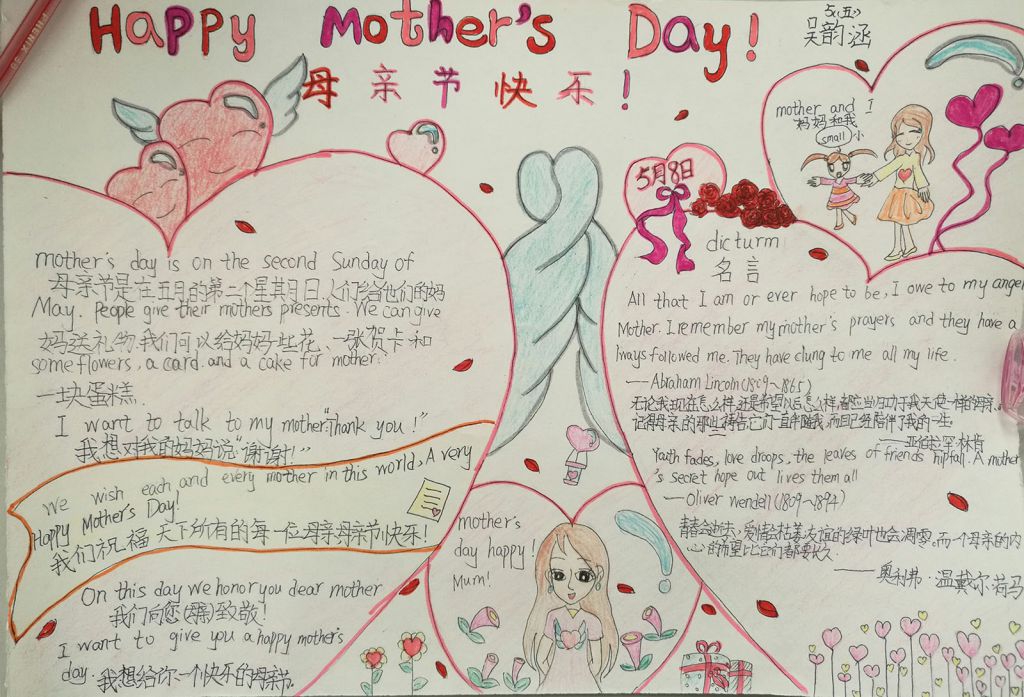 Happy Mother's Day!
母亲节快乐!
5.(五.)
吴韵涵
mother and I
妈妈和我
(small) 小
5月8日
mother's day is on the second Sunday of
母亲节是在五月的第二个星其月日,人们给他们的妈
May. People give their mothers presents. We can give
妈送礼物.我们可以给妈妈一些花、一张贺卡和
some flowers, a card. and a cake for mother.
一块蛋糕.
I want to talk to my mother:"Thank you!"
我想对我的妈妈说:"谢谢!"
We wish each and every mother in this world, A very
Happy Mother's Day!
我们祝福天下所有的每一位母亲母亲节快乐!
On this day we honor you dear mother
我们向您(母亲)致敬!
I want to give you a happy mother's
day. 我想给你一个快乐的母亲节.
mother's
day happy!
Mum!
dicturm
名言
All that I am or ever hope to be, I owe to my angel
Mother. I remember my mother's prayers and they have a
lways followed me. They have clung to me all my life.
——Abraham Lincoln(1809~1865)
无论我现在怎么样,还是希望以后怎么样,都应当归功于我天使一样的母亲.我
记得母亲的那些祷告,它们一直伴随我,而且已经陪伴了我的一生.
——亚伯拉罕·林肯
Youth fades, love droops, the leaves of friends hipfall. A mother
's secret hope out lives them all
——Oliver wendell(1809-1894)
青春会逝去;爱情会枯萎;友谊的绿叶也会凋零。而一个母亲的内
心的希望比它们都要长久.
——奥利弗·温戴尔·荷马